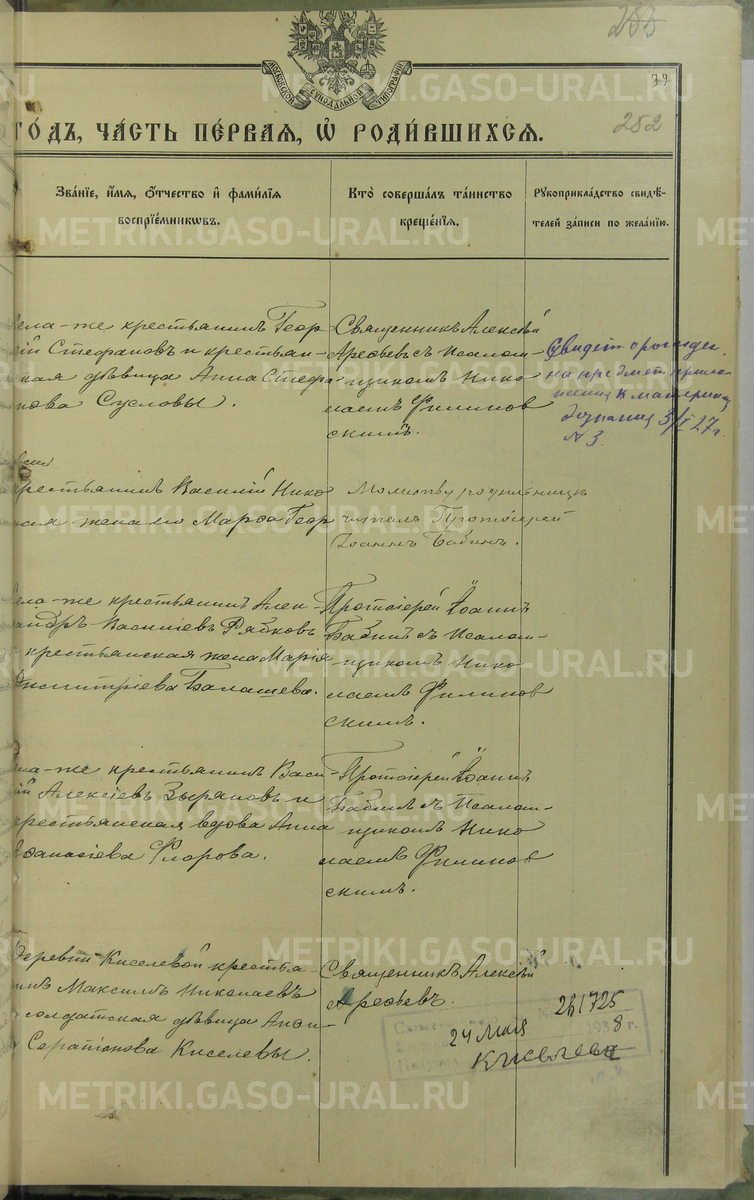 253
39
МОСКОВСКОЙ СѴНОДАЛЬНОЙ ТИПОГРАФІИ
252
ГОДЪ, ЧАСТЬ ПЕРВАЯ, Ѡ РОДИВШИХСЯ.
Званіе, имя, отчество и фамилія
воспріемниковъ.
Кто совершалъ таинство
крещенія.
Рукоприкладство свидѣ-
телей записи по желанію.
METRIKI.GASO-URAL.RU
села-же крестьянинъ Геор
гій Стефановъ и крестьян-
ская дѣвица Анна Стефа
нова Сусловы.
Священникъ Алексѣй
Арефьевъ съ псалом-
щикомъ Нико
лаемъ Филинов
скимъ.
Свидет о рожден.
на предмет прило
жения к материалу
дознания 3/I 27 г.
№ 3.
крестьянинъ Василій Нико
жена его Марѳа Геор
Молитву родильницѣ
читалъ Протоіерей
Іоаннъ Бабинъ.
села-же крестьянинъ Алек-
сандръ Василіевъ Рябковъ
крестьянская жена Марія
Димитріева Балашева.
Протоіерей Іоаннъ
Бабинъ съ псалом-
щикомъ Нико
лаемъ Филинов
скимъ.
села-же крестьянинъ Васи-
лій Алексіевъ Зыряновъ и
крестьянская вдова Анна
Аѳанасіева Флорова.
Протоіерей Іоаннъ
Бабинъ съ псалом-
щикомъ Нико
лаемъ Филинов
скимъ.
деревни Киселевой крестья-
нинъ Максимъ Николаевъ
солдатская дѣвица Анфи-
Серапіонова Киселевы.
Священникъ Алексѣй
Арефьевъ.
261725
24 Мая 1938 г.
Киселев